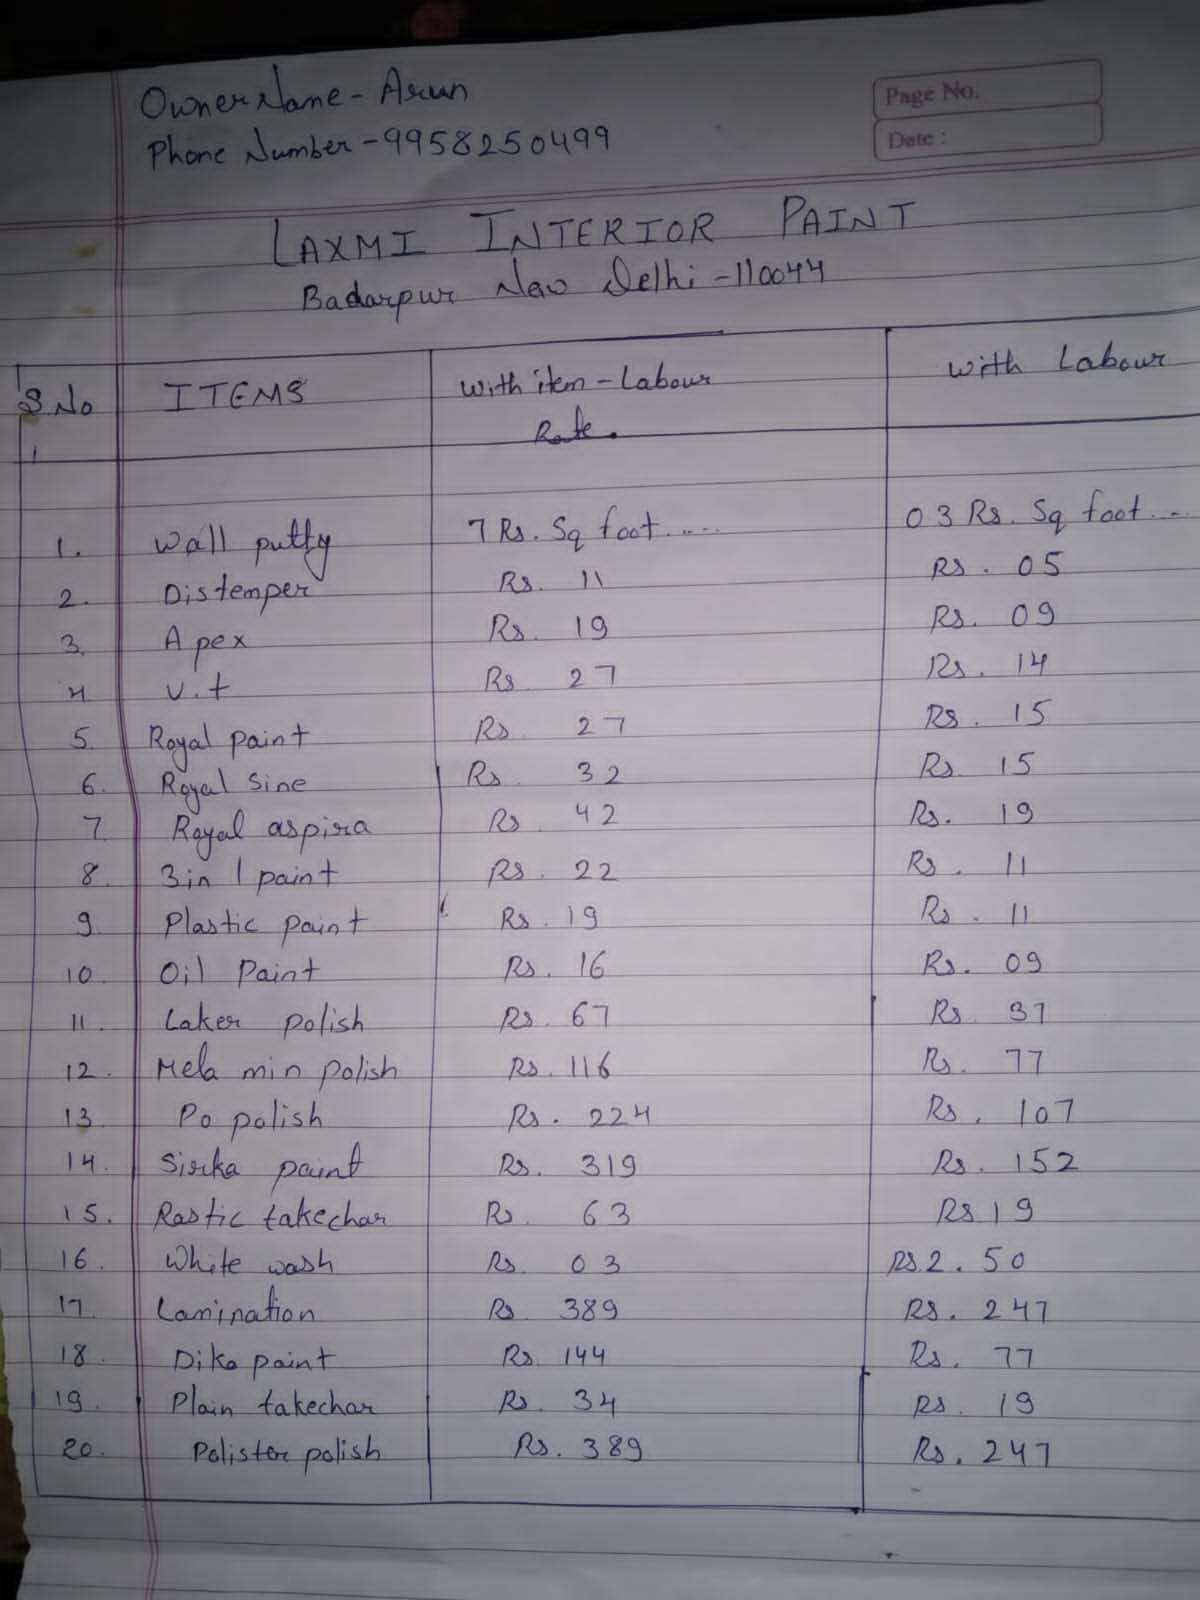 Owner Name - Arun
Phone Number - 9958250499
Page No.
Date :
LAXMI INTERIOR PAINT
Badarpur New Delhi - 110044
S.No ITEMS With item - Labour Rate. With Labour
1. Wall putty 7 Rs. Sq foot..... 03 Rs. Sq foot....
2. Distemper Rs. 11 Rs. 05
3. Apex Rs. 19 Rs. 09
4 V.t Rs 27 Rs. 14
5. Royal paint Rs 27 Rs. 15
6. Royal Sine Rs 32 Rs. 15
7. Royal aspira Rs. 42 Rs. 19
8. 3 in 1 paint Rs. 22 Rs. 11
9. Plastic paint Rs. 19 Rs. 11
10. Oil Paint Rs. 16 Rs. 09
11. Laker polish Rs. 67 Rs. 37
12. Mela min polish Rs. 116 Rs. 77
13. Po polish Rs. 224 Rs. 107
14. Sirka paint Rs. 319 Rs. 152
15. Rastic takechar Rs. 63 Rs 19
16. White wash Rs. 03 Rs. 2.50
17. Lamination Rs. 389 Rs. 247
18. Dika paint Rs. 144 Rs. 77
19. Plain takechar Rs. 34 Rs. 19
20. Polister polish Rs. 389 Rs. 247